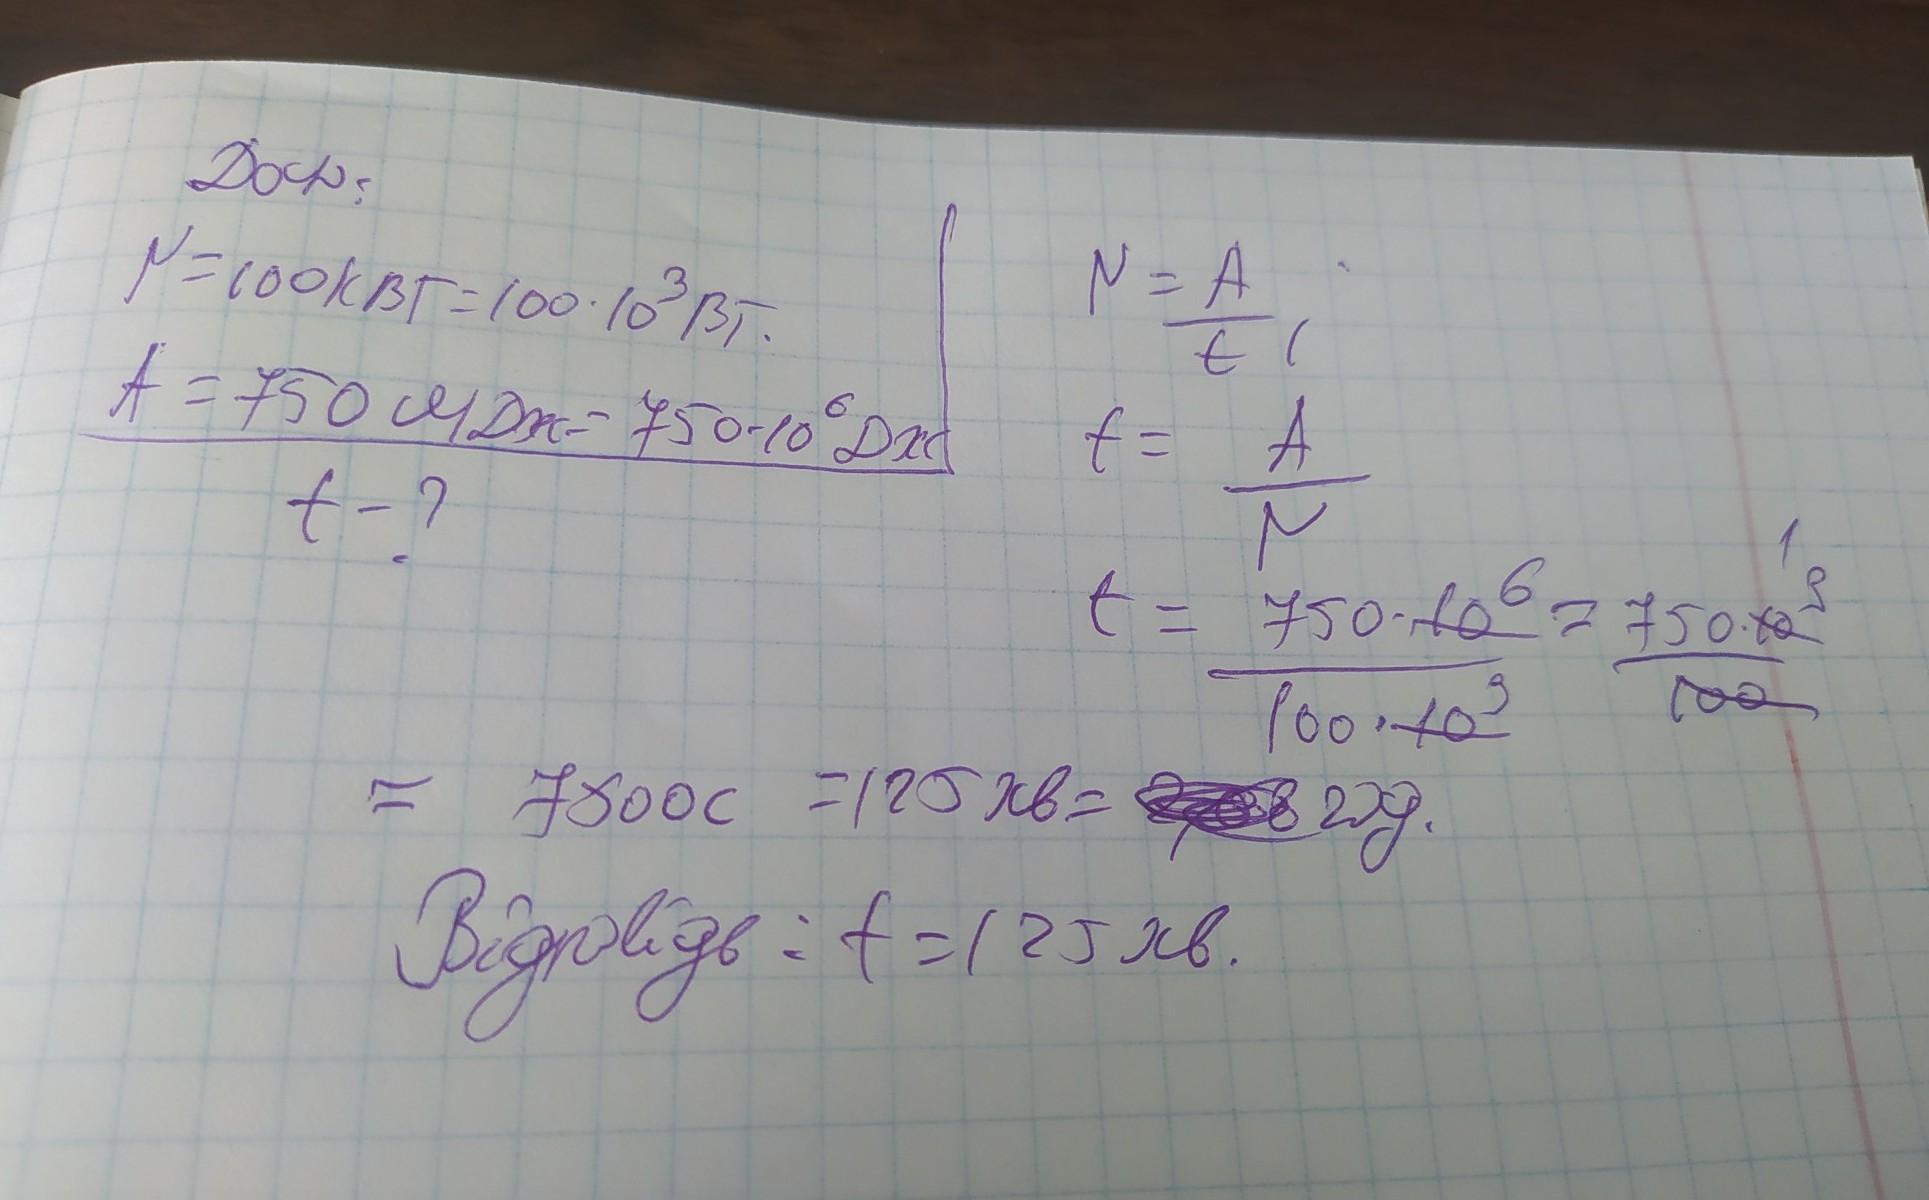 N=100кВт=100·10³Вт.
A=750МДж=750·10⁶Дж
t-?
N=A/t
t=A/N
t=750·10⁶/100·10³=750·10³/100 1
=7500с=125хв= 2год.
Відповідь: t=125хв.